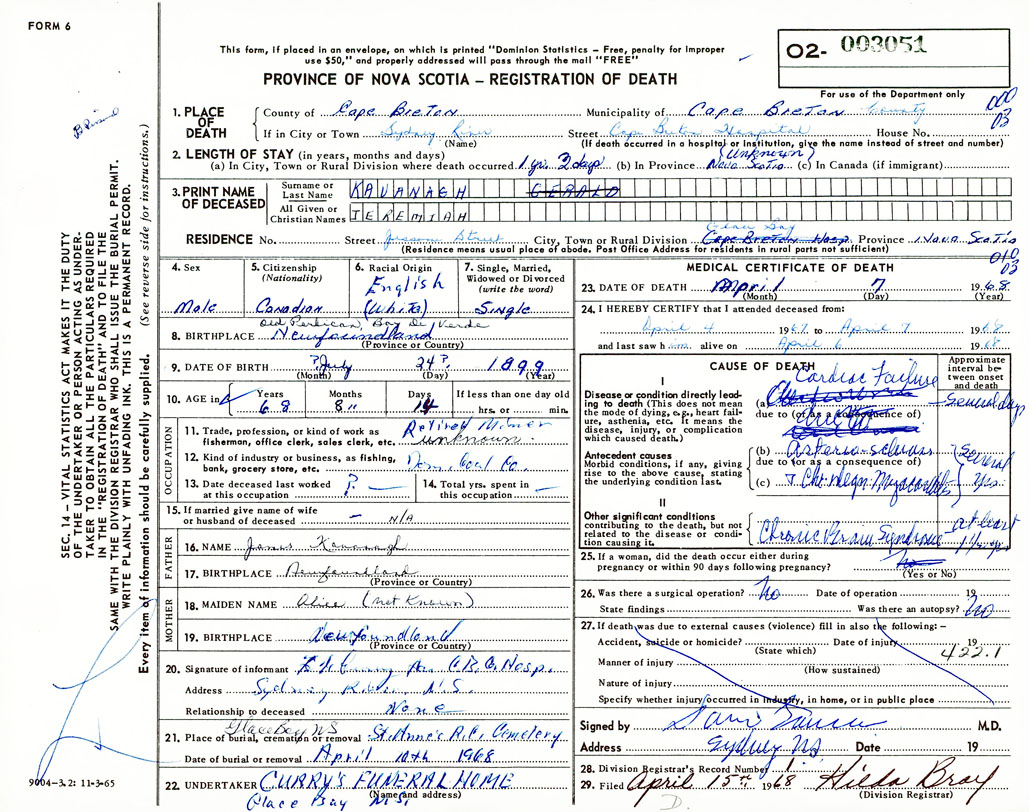 FORM 6
This form, if placed in an envelope, on which is printed "Dominion Statistics – Free, penalty for improper
use $50," and properly addressed will pass through the mail "FREE"
PROVINCE OF NOVA SCOTIA – REGISTRATION OF DEATH
02- 003051
For use of the Department only
000
03
1. PLACE OF DEATH
County of Cape Breton Municipality of Cape Breton County
If in City or Town Sydney River Street Cape Breton Hospital House No.
(Name) (If death occurred in a hospital or institution, give the name instead of street and number)
2. LENGTH OF STAY (in years, months and days) (Unknown)
(a) In City, Town or Rural Division where death occurred 1 yr. 2 days (b) In Province Nova Scotia (c) In Canada (if immigrant)
3. PRINT NAME OF DECEASED
Surname or Last Name KAVANAGH GERALD
All Given or Christian Names JEREMIAH
Glace Bay
RESIDENCE No. Street Street City, Town or Rural Division Cape Breton Hosp. Province Nova Scotia
(Residence means usual place of abode, Post Office Address for residents in rural parts not sufficient)
010
03
4. Sex
Male
5. Citizenship
(Nationality)
Canadian
6. Racial Origin
English
(White)
7. Single, Married,
Widowed or Divorced
(write the word)
Single
Old Perlican, Bay De Verde
8. BIRTHPLACE Newfoundland
(Province or Country)
9. DATE OF BIRTH ? July 24? 1899
(Month) (Day) (Year)
10. AGE in Years 68 Months 8" Days 14 If less than one day old
hrs. or min.
OCCUPATION
11. Trade, profession, or kind of work as Retired Miner
fisherman, office clerk, sales clerk, etc. unknown
12. Kind of industry or business, as fishing,
bank, grocery store, etc. Dom. Coal Co.
13. Date deceased last worked
at this occupation ? –
14. Total yrs. spent in
this occupation –
15. If married give name of wife
or husband of deceased – N/A
FATHER
16. NAME James Kavanagh
17. BIRTHPLACE Newfoundland
(Province or Country)
MOTHER
18. MAIDEN NAME Alice (not Known)
19. BIRTHPLACE Newfoundland
(Province or Country)
20. Signature of informant C.B. Hosp.
Address Sydney River, N.S.
Relationship to deceased None
Glace Bay NS
21. Place of burial, cremation or removal St. Anne's R.C. Cemetery
Date of burial or removal April 10th 1968
22. UNDERTAKER CURRY'S FUNERAL HOME
(Name and address)
Glace Bay N.S.
MEDICAL CERTIFICATE OF DEATH
23. DATE OF DEATH April 7 1968
(Month) (Year)
24. I HEREBY CERTIFY that I attended deceased from:
April 4 1967 to April 7 1968
and last saw him alive on April 6 1968
CAUSE OF DEATH
Approximate
interval be-
tween onset
and death
I
Disease or condition directly lead-
ing to death (This does not mean
the mode of dying, e.g., heart fail-
ure, asthenia, etc. It means the
disease, injury, or complication
which caused death.)
Cardiac Failure
(a) Several days
due to (or as a consequence of)
Antecedent causes
Morbid conditions, if any, giving
rise to the above cause, stating
the underlying condition last.
(b)
due to (or as a consequence of)
(c)
Several
yrs.
II
Other significant conditions
contributing to the death, but not
related to the disease or condi-
tion causing it.
Chronic Brain Syndrome
at least
25. If a woman, did the death occur either during
pregnancy or within 90 days following pregnancy?
(Yes or No)
26. Was there a surgical operation? No Date of operation 19
State findings Was there an autopsy? No
27. If death was due to external causes (violence) fill in also the following: –
Accident, suicide or homicide? Date of injury 19
(State which)
422.1
Manner of injury
(How sustained)
Nature of injury
Specify whether injury occurred in industry, in home, or in public place
Signed by M.D.
Address Sydney NS Date 19
28. Division Registrar's Record Number 1
29. Filed April 15th 1968 Hilda Bray
(Division Registrar)
D.
SEC. 14 – VITAL STATISTICS ACT MAKES IT THE DUTY
OF THE UNDERTAKER OR PERSON ACTING AS UNDER-
TAKER TO OBTAIN ALL THE PARTICULARS REQUIRED
IN THE "REGISTRATION OF DEATH" AND TO FILE THE
SAME WITH THE DIVISION REGISTRAR WHO SHALL ISSUE THE BURIAL PERMIT.
WRITE PLAINLY WITH UNFADING INK. THIS IS A PERMANENT RECORD.
Every item of information should be carefully supplied. (See reverse side for instructions.)
9004–3.2: 11-3-65